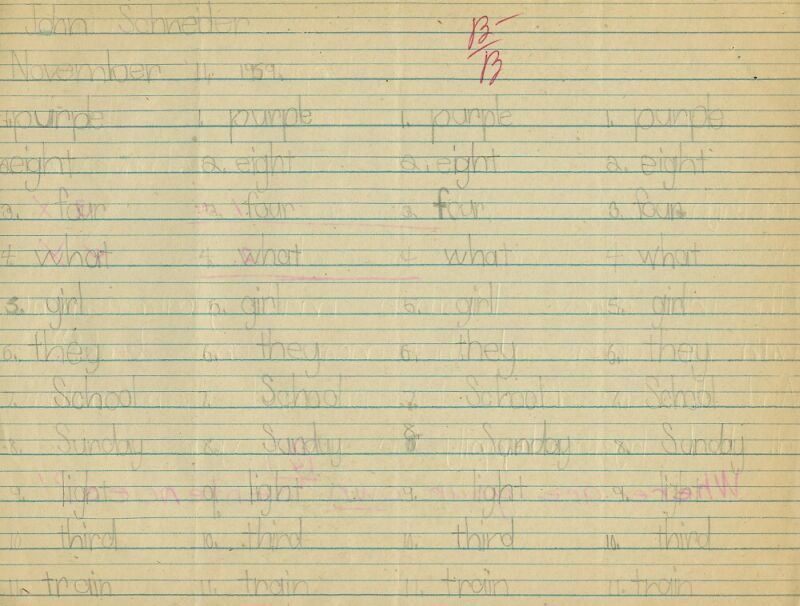 John Schneider
B-
B
November 11, 1959.
1. purple 1. purple 1. purple 1. purple
2. eight 2. eight 2. eight 2. eight
3. four 3. four 3. four 3. four
4. what 4. what 4. what 4. what
5. girl 5. girl 5. girl 5. girl
6. they 6. they 6. they 6. they
7. School 7. School 7. School 7. School
8. Sunday 8. Sunday 8. Sunday 8. Sunday
9. light 9. light 9. light 9. light
10. third 10. third 10. third 10. third
11. train 11. train 11. train 11. train